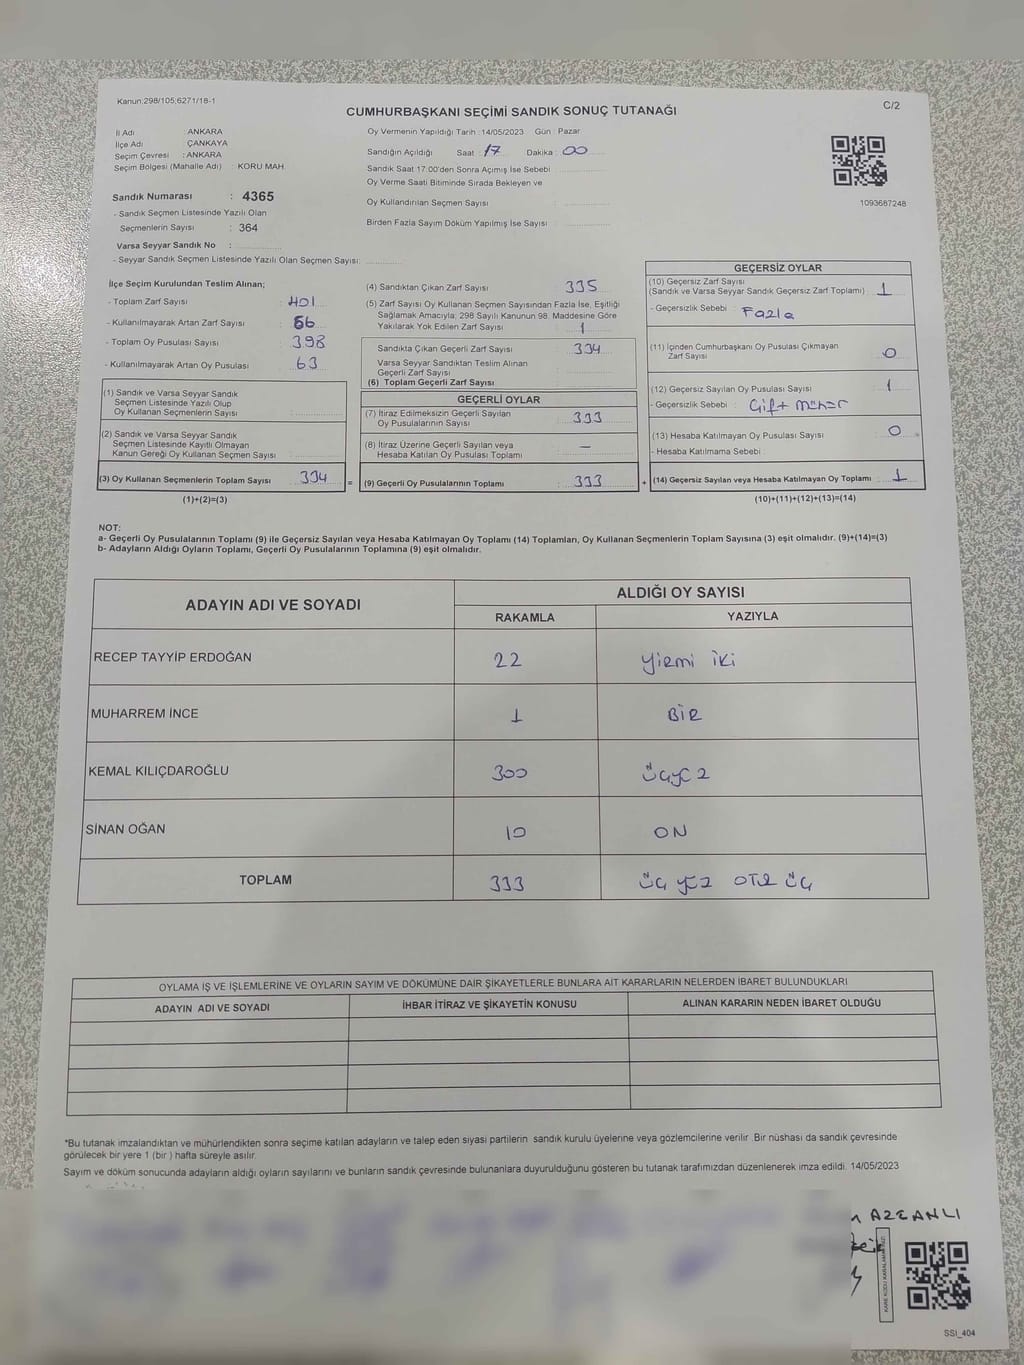 Kanun:298/105;6271/18-1
C/2
CUMHURBAŞKANI SEÇİMİ SANDIK SONUÇ TUTANAĞI
İl Adı : ANKARA
İlçe Adı : ÇANKAYA
Seçim Çevresi : ANKARA
Seçim Bölgesi (Mahalle Adı) : KORU MAH.
Sandık Numarası : 4365
- Sandık Seçmen Listesinde Yazılı Olan
Seçmenlerin Sayısı : 364
Varsa Seyyar Sandık No :
- Seyyar Sandık Seçmen Listesinde Yazılı Olan Seçmen Sayısı:
Oy Vermenin Yapıldığı Tarih :14/05/2023 Gün : Pazar
Sandığın Açıldığı Saat : 17 Dakika : 00
Sandık Saat 17:00'den Sonra Açılmış İse Sebebi
Oy Verme Saati Bitiminde Sırada Bekleyen ve
Oy Kullandırılan Seçmen Sayısı :
Birden Fazla Sayım Döküm Yapılmış İse Sayısı :
1093687248
İlçe Seçim Kurulundan Teslim Alınan;
- Toplam Zarf Sayısı : 401
- Kullanılmayarak Artan Zarf Sayısı : 66
- Toplam Oy Pusulası Sayısı : 398
- Kullanılmayarak Artan Oy Pusulası : 63
(1) Sandık ve Varsa Seyyar Sandık
Seçmen Listesinde Yazılı Olup
Oy Kullanan Seçmenlerin Sayısı :
(2) Sandık ve Varsa Seyyar Sandık
Seçmen Listesinde Kayıtlı Olmayan
Kanun Gereği Oy Kullanan Seçmen Sayısı :
(3) Oy Kullanan Seçmenlerin Toplam Sayısı : 334
(1)+(2)=(3)
=
(4) Sandıktan Çıkan Zarf Sayısı : 335
(5) Zarf Sayısı Oy Kullanan Seçmen Sayısından Fazla İse, Eşitliği
Sağlamak Amacıyla; 298 Sayılı Kanunun 98. Maddesine Göre
Yakılarak Yok Edilen Zarf Sayısı : 1
Sandıkta Çıkan Geçerli Zarf Sayısı : 334
Varsa Seyyar Sandıktan Teslim Alınan
Geçerli Zarf Sayısı
(6) Toplam Geçerli Zarf Sayısı
GEÇERLİ OYLAR
(7) İtiraz Edilmeksizin Geçerli Sayılan
Oy Pusulalarının Sayısı : 333
(8) İtiraz Üzerine Geçerli Sayılan veya
Hesaba Katılan Oy Pusulası Toplamı : —
(9) Geçerli Oy Pusulalarının Toplamı : 333
+
GEÇERSİZ OYLAR
(10) Geçersiz Zarf Sayısı
(Sandık ve Varsa Seyyar Sandık Geçersiz Zarf Toplamı) : 1
- Geçersizlik Sebebi : Fazla
(11) İçinden Cumhurbaşkanı Oy Pusulası Çıkmayan
Zarf Sayısı : 0
(12) Geçersiz Sayılan Oy Pusulası Sayısı : 1
- Geçersizlik Sebebi : Çift mühür
(13) Hesaba Katılmayan Oy Pusulası Sayısı : 0
- Hesaba Katılmama Sebebi :
(14) Geçersiz Sayılan veya Hesaba Katılmayan Oy Toplamı : 1
(10)+(11)+(12)+(13)=(14)
NOT:
a- Geçerli Oy Pusulalarının Toplamı (9) ile Geçersiz Sayılan veya Hesaba Katılmayan Oy Toplamı (14) Toplamları, Oy Kullanan Seçmenlerin Toplam Sayısına (3) eşit olmalıdır. (9)+(14)=(3)
b- Adayların Aldığı Oyların Toplamı, Geçerli Oy Pusulalarının Toplamına (9) eşit olmalıdır.
ADAYIN ADI VE SOYADI
ALDIĞI OY SAYISI
RAKAMLA YAZIYLA
RECEP TAYYİP ERDOĞAN 22 Yirmi iki
MUHARREM İNCE 1 BİR
KEMAL KILIÇDAROĞLU 300 üçyüz
SİNAN OĞAN 10 ON
TOPLAM 333 üç yüz otuz üç
OYLAMA İŞ VE İŞLEMLERİNE VE OYLARIN SAYIM VE DÖKÜMÜNE DAİR ŞİKAYETLERLE BUNLARA AİT KARARLARIN NELERDEN İBARET BULUNDUKLARI
ADAYIN ADI VE SOYADI İHBAR İTİRAZ VE ŞİKAYETİN KONUSU ALINAN KARARIN NEDEN İBARET OLDUĞU
*Bu tutanak imzalandıktan ve mühürlendikten sonra seçime katılan adayların ve talep eden siyasi partilerin sandık kurulu üyelerine veya gözlemcilerine verilir. Bir nüshası da sandık çevresinde
görülecek bir yere 1 (bir ) hafta süreyle asılır.
Sayım ve döküm sonucunda adayların aldığı oyların sayılarını ve bunların sandık çevresinde bulunanlara duyurulduğunu gösteren bu tutanak tarafımızdan düzenlenerek imza edildi. 14/05/2023
AZEANLI
SSI_404